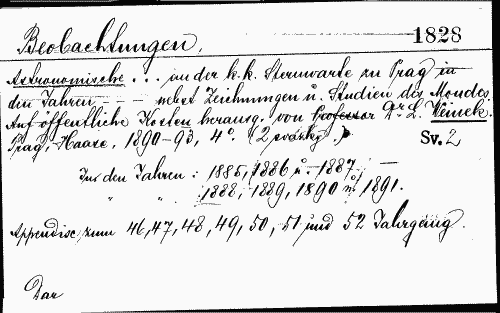 Beobachtungen, 1828
Astronomische . . . an der k. k. Sternwarte zu Prag in
den Jahren - - - nebst Zeichnungen u. Studien des Mondes
Auf öffentliche Kosten herausg. von Professor Dr. L. Weinek.
Prag, Haase, 1890-93, 4°. (2 svazky.) Sv. 2
In den Jahren: 1885, 1886 u. 1887. —
" " 1888, 1889, 1890 u. 1891.
Appendix zum 46, 47, 48, 49, 50, 51 und 52 Jahrgang.
Dar